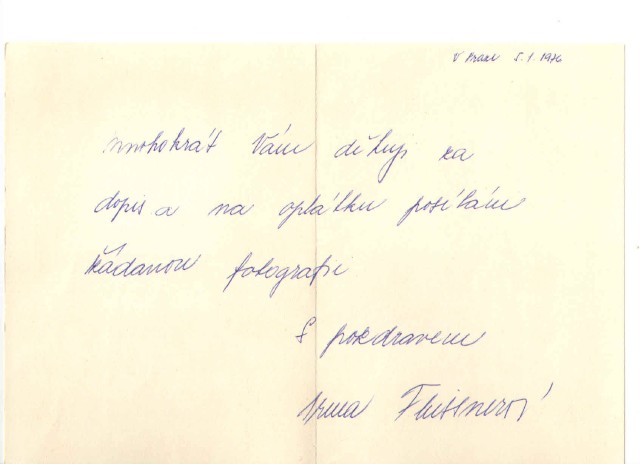 V Praze 5.1.1976
mnohokrát Vám děkuji za
dopis a na oplátku posílám
žádanou fotografii
S pozdravem